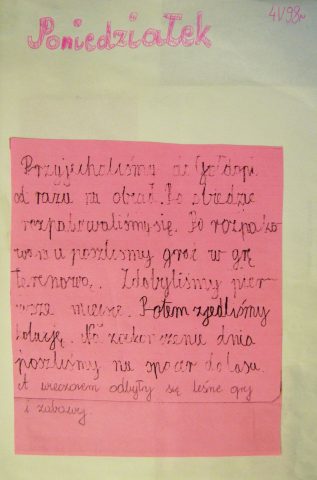 Poniedziałek
4 V 98r
Przyjechaliśmy do Gołdapi
od razu na obiad. Po obiedzie
rozpakowaliśmy się. Po rozpako
waniu poszliśmy grać w grę
terenową. Zdobyliśmy pier
wsze miejsce. Potem zjedliśmy
kolację. Na zakończenie dnia
poszliśmy na spacer do lasu.
A wieczorem odbyły się leśne gry
i zabawy.